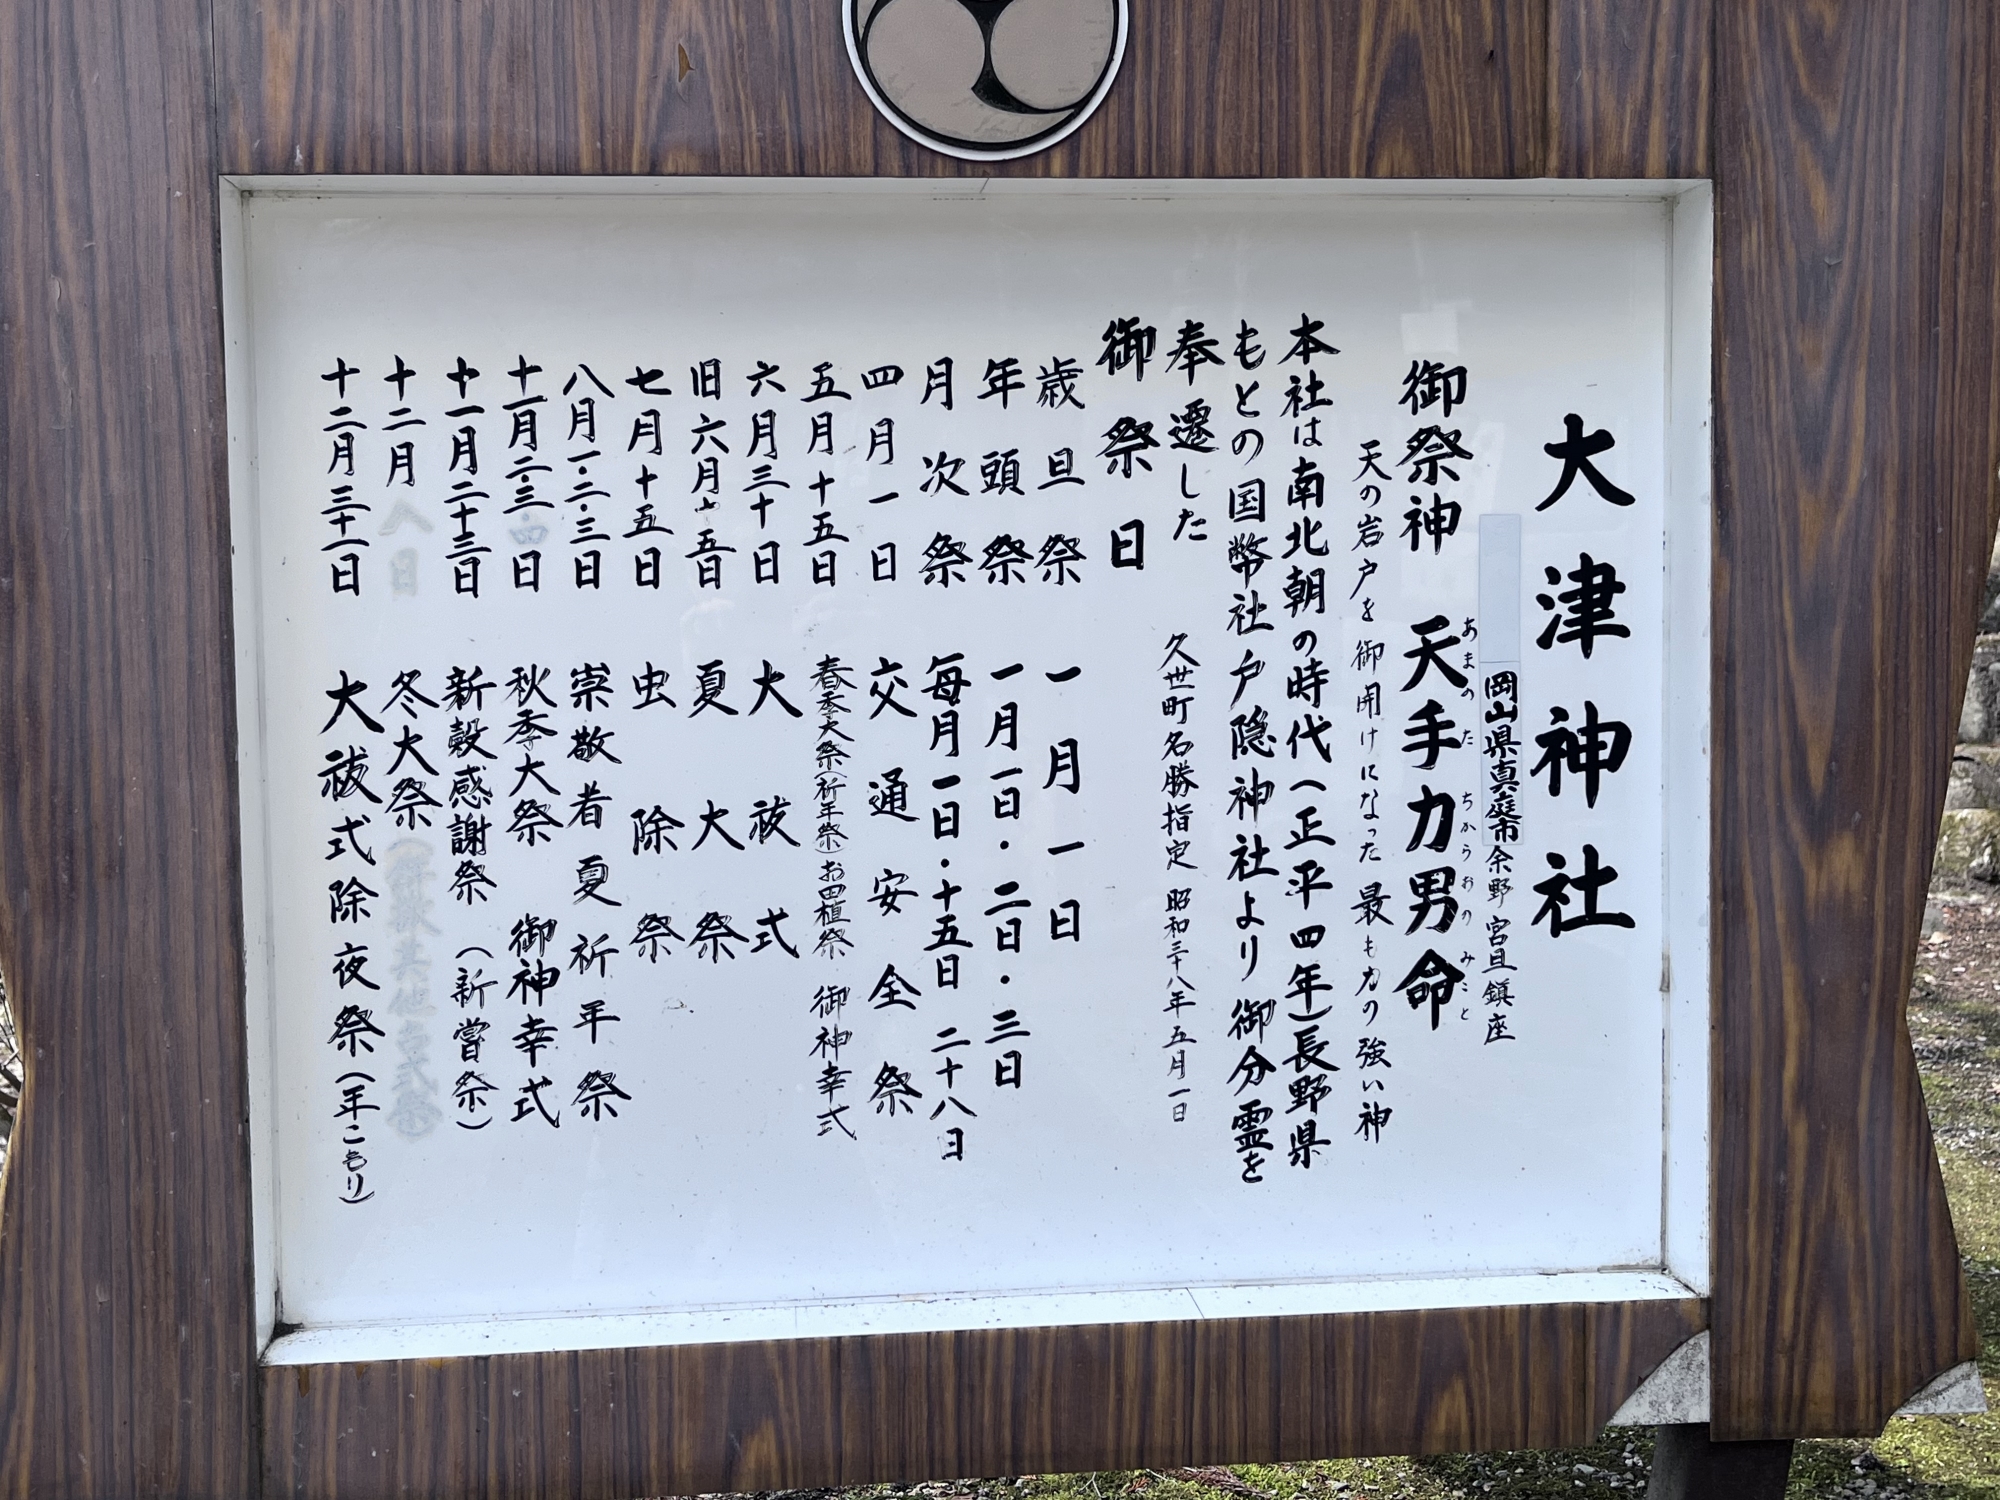 大津神社
岡山県真庭市余野 宮旦鎮座
御祭神 天手力男命
あまのた ちからおのみこと
天の岩戸を御開けになった最も力の強い神
本社は南北朝の時代(正平四年)長野県
もとの国幣社戸隐神社より御分霊を
奉遷した
久世町名勝指定 昭和三十八年五月一日
御祭日
歳旦祭 一月一日
年頭祭 一月一日・二日・三日
月次祭 毎月一日・十五日 二十八日
四月一日 交通安全祭
五月十五日 春季大祭(祈年祭)お田植祭 御神幸式
六月三十日 大祓式
旧六月十五日 夏大祭
七月十五日 虫除祭
八月一・二・三日 崇敬者夏祈年祭
十一月二・三日 秋季大祭 御神幸式
十一月二十三日 新穀感謝祭 (新嘗祭)
十二月八日 冬大祭
十二月三十一日 大祓式除夜祭(年こもり)